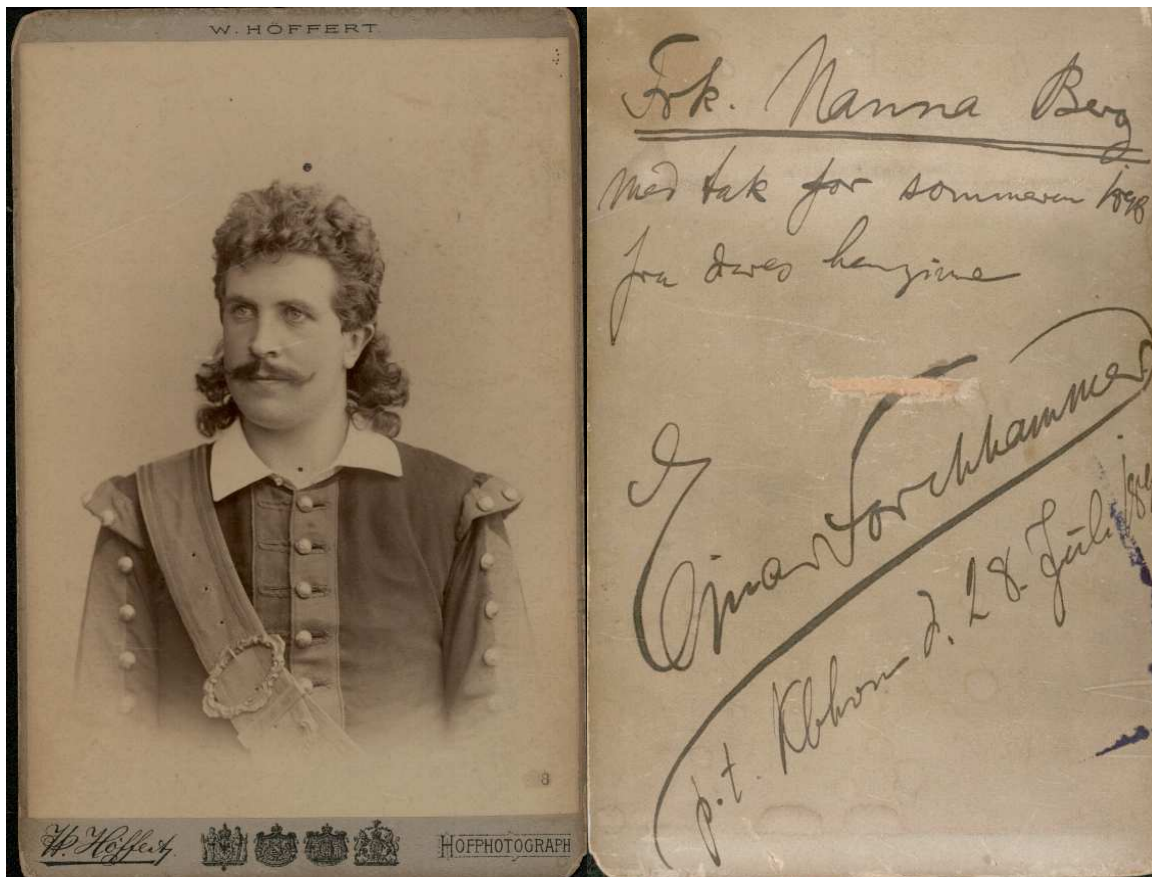 W. HÖFFERT
W. Höffert,
HOFPHOTOGRAPH
8
Frk. Nanna Berg
med tak for sommeren
fra deres hengivne
Ejnar Forchhammer
p.t. Kbhvn d. 28. Juli